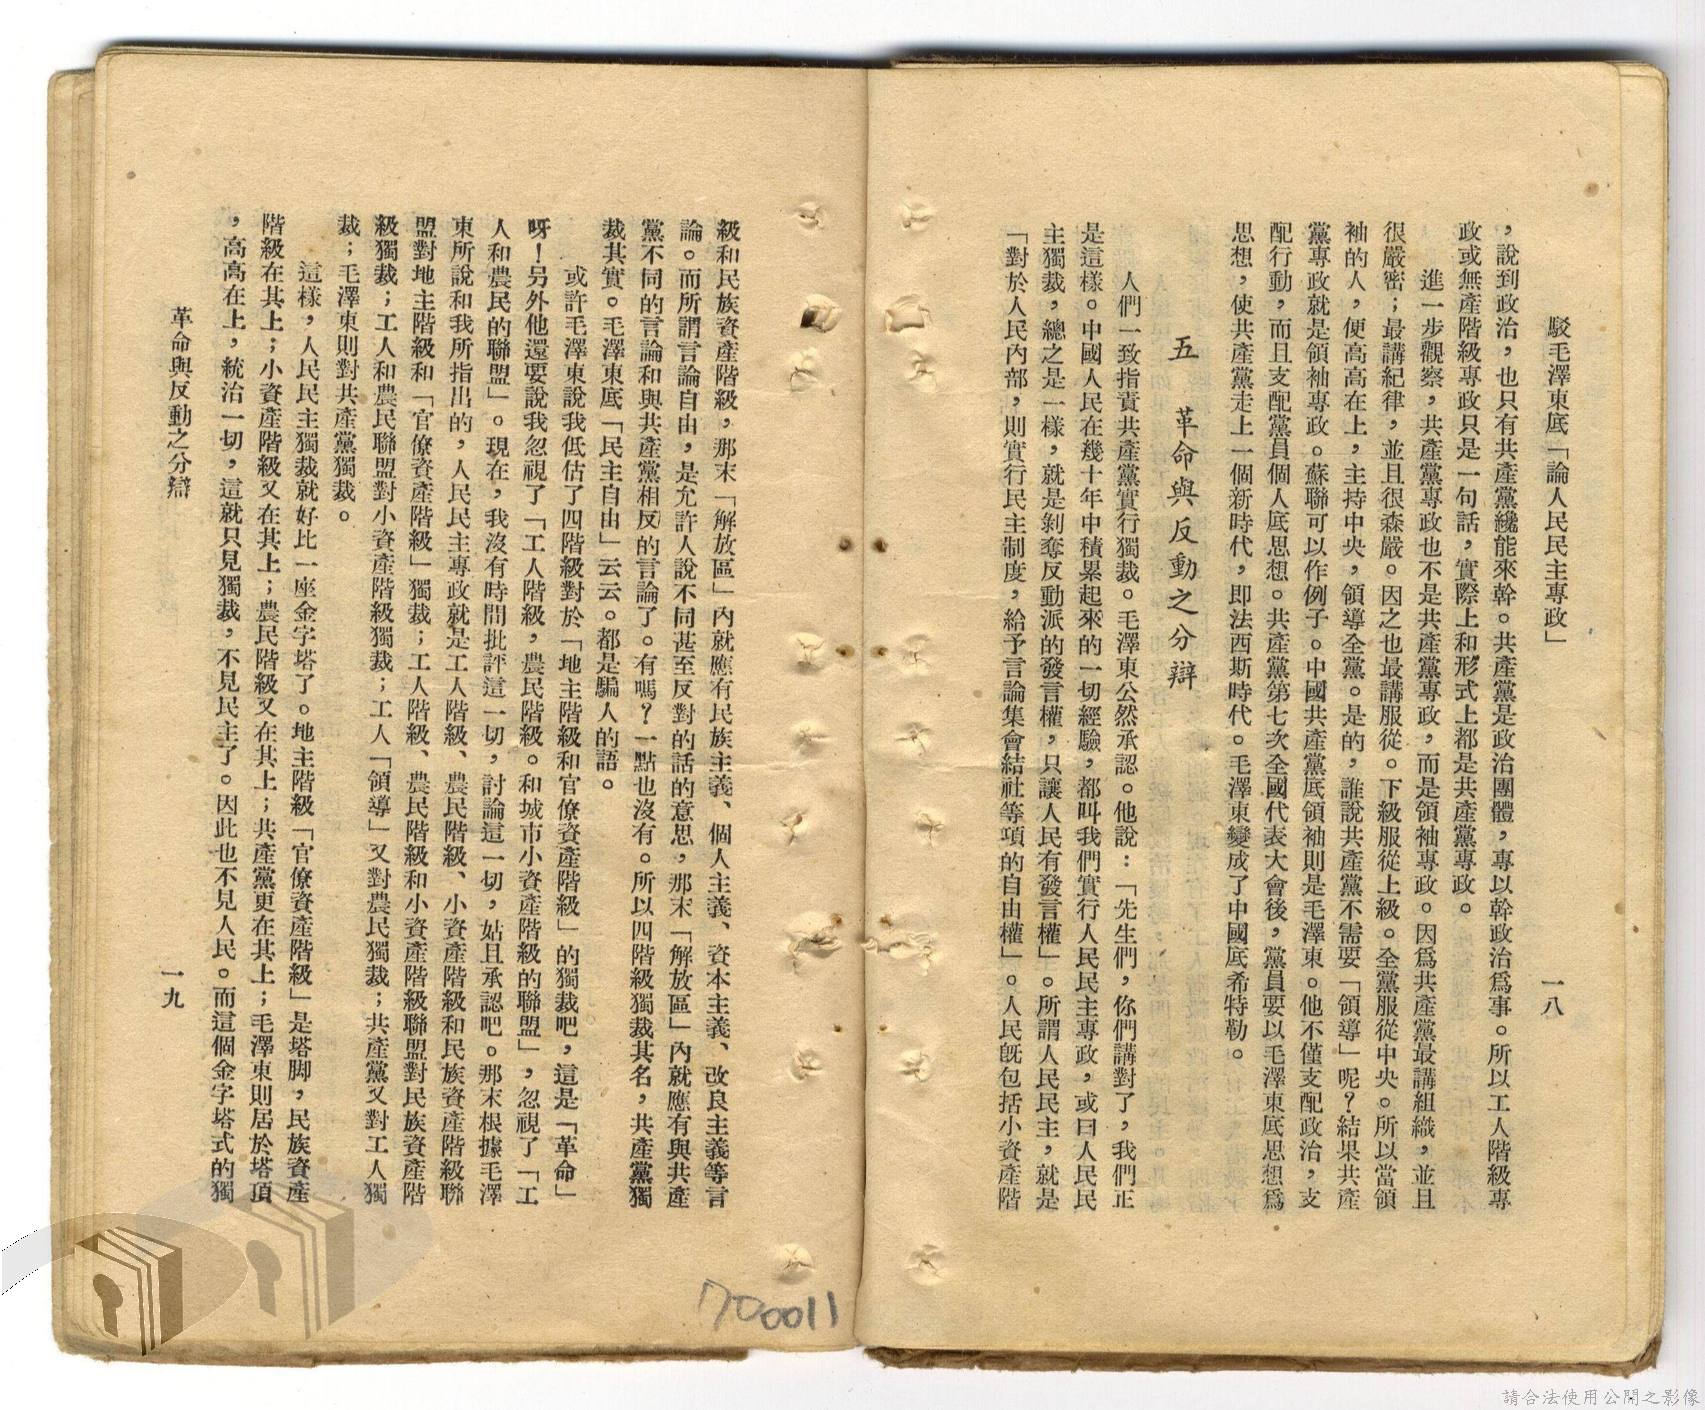 駁毛澤東底「論人民民主專政」
一八
，說到政治，也只有共產黨纔能來幹。共產黨是政治團體，專以幹政治爲事。所以工人階級專
政或無產階級專政只是一句話，實際上和形式上都是共產黨專政。
進一步觀察，共產黨專政也不是共產黨專政，而是領袖專政。因爲共產黨最講組織，並且
很嚴密；最講紀律，並且很森嚴。因之也最講服從。下級服從上級。全黨服從中央。所以當領
袖的人，便高高在上，主持中央，領導全黨。是的，誰說共產黨不需要「領導」呢？結果共產
黨專政就是領袖專政。蘇聯可以作例子。中國共產黨底領袖則是毛澤東。他不僅支配政治，支
配行動，而且支配黨員個人底思想。共產黨第七次全國代表大會後，黨員要以毛澤東底思想爲
思想，使共產黨走上一個新時代，即法西斯時代。毛澤東變成了中國底希特勒。
五　革命與反動之分辯
人們一致指責共產黨實行獨裁。毛澤東公然承認。他說：「先生們，你們講對了，我們正
是這樣。中國人民在幾十年中積累起來的一切經驗，都叫我們實行人民民主專政，或曰人民民
主獨裁，總之是一樣，就是剝奪反動派的發言權，只讓人民有發言權」。所謂人民民主，就是
「對於人民內部，則實行民主制度，給予言論集會結社等項的自由權」。人民旣包括小資產階
級和民族資產階級，那末「解放區」內就應有民族主義、個人主義、資本主義、改良主義等言
論。而所謂言論自由，是允許人說不同甚至反對的話的意思，那末「解放區」內就應有與共產
黨不同的言論和與共產黨相反的言論了。有嗎？一點也沒有。所以四階級獨裁其名，共產黨獨
裁其實。毛澤東底「民主自由」云云。都是騙人的語。
或許毛澤東說我低估了四階級對於「地主階級和官僚資產階級」的獨裁吧，這是「革命」
呀！另外他還要說我忽視了「工人階級，農民階級。和城市小資產階級的聯盟」，忽視了「工
人和農民的聯盟」。現在，我沒有時間批評這一切，討論這一切，姑且承認吧。那末根據毛澤
東所說和我所指出的，人民民主專政就是工人階級、農民階級、小資產階級和民族資產階級聯
盟對地主階級和「官僚資產階級」獨裁；工人階級、農民階級和小資產階級聯盟對民族資產階
級獨裁；工人和農民聯盟對小資產階級獨裁；工人「領導」又對農民獨裁；共產黨又對工人獨
裁；毛澤東則對共產黨獨裁。
這樣，人民民主獨裁就好比一座金字塔了。地主階級「官僚資產階級」是塔脚，民族資產
階級在其上；小資產階級又在其上；農民階級又在其上；共產黨更在其上；毛澤東則居於塔頂
，高高在上，統治一切，這就只見獨裁，不見民主了。因此也不見人民。而這個金字塔式的獨
革命與反動之分辯
一九
700011
請合法使用公開之影像